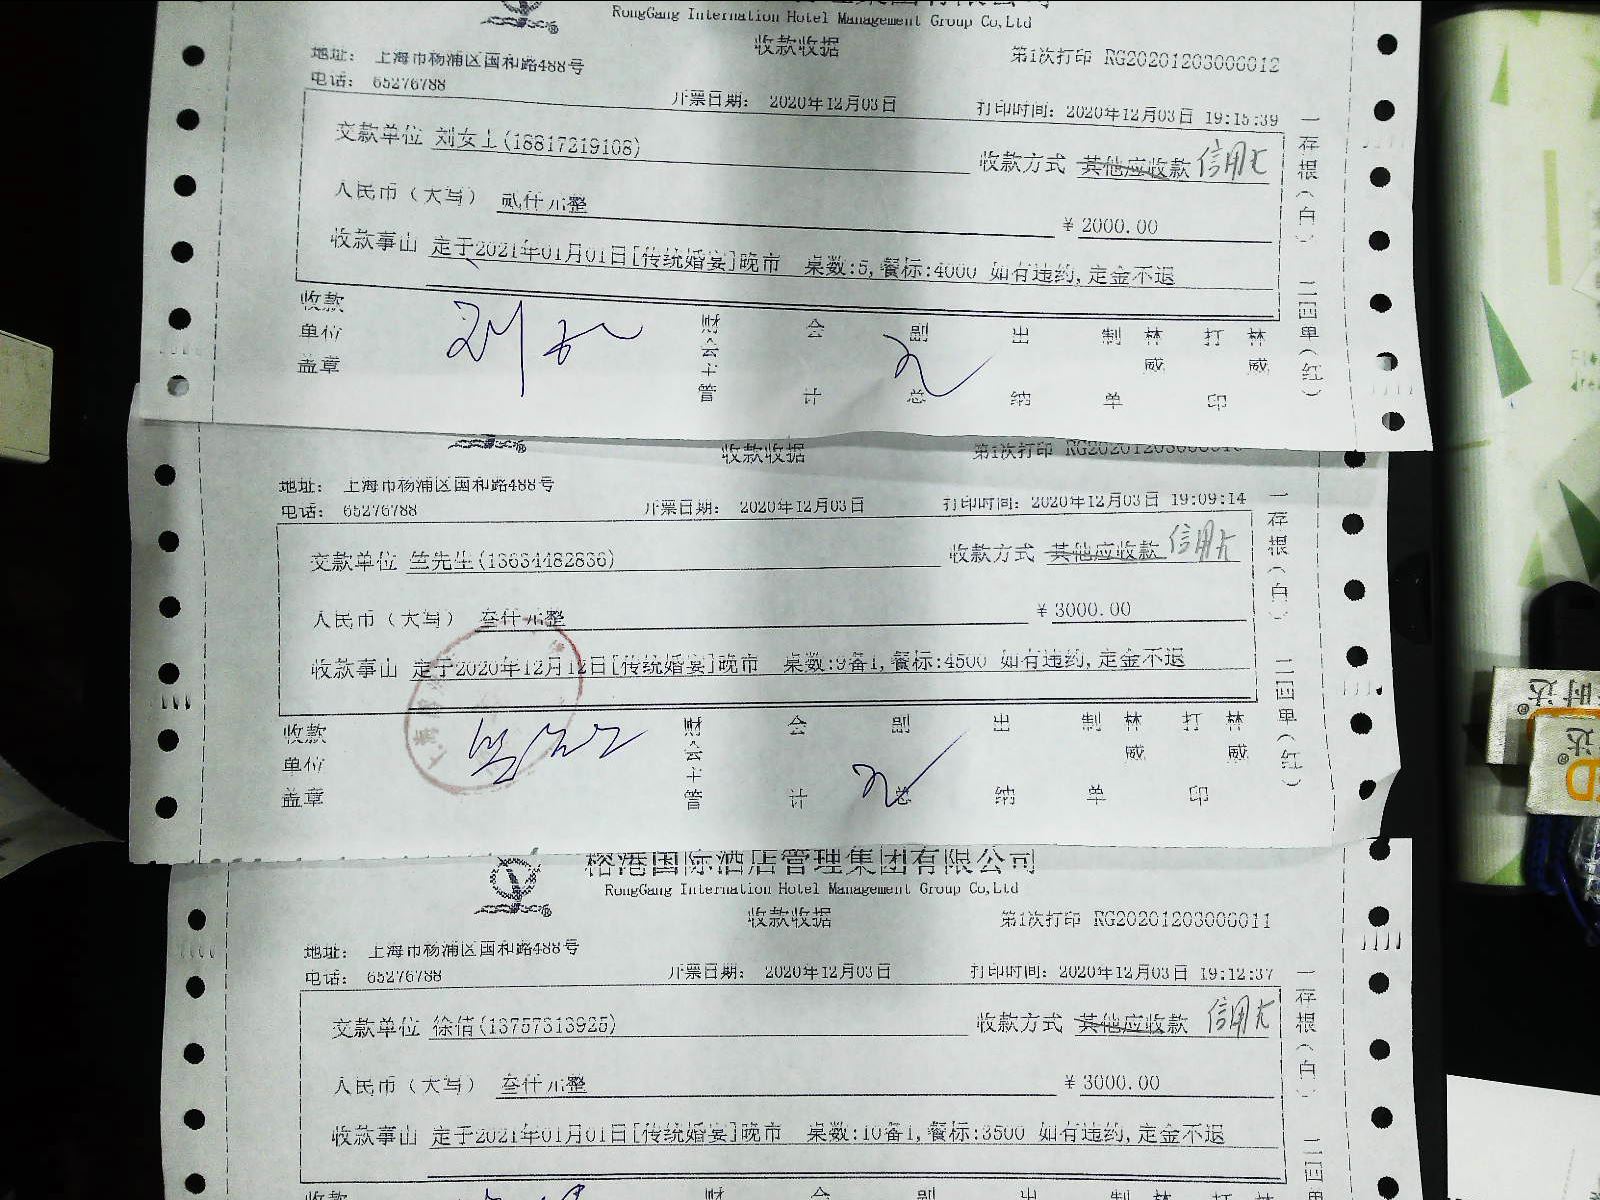 RongGang Internation Hotel Management Group Co,Ltd
收款收据
第1次打印 RG20201203000012
地址： 上海市杨浦区国和路488号
电话： 65276788
开票日期： 2020年12月03日
打印时间：2020年12月03日 19:15:39
交款单位 刘女士(18817219108)
收款方式 其他应收款 信用卡
人民币（大写） 贰仟元整
¥ 2000.00
收款事由 定于2021年01月01日[传统婚宴]晚市 桌数:5,餐标:4000 如有违约,定金不退
一存根（白） 二回单（红）
收款单位盖章
财会主管 会计 副总 出纳 制单 林威 打印 林威
收款收据
第1次打印
地址： 上海市杨浦区国和路488号
电话： 65276788
开票日期： 2020年12月03日
打印时间：2020年12月03日 19:09:14
交款单位 竺先生(13634482836)
收款方式 其他应收款 信用卡
人民币（大写） 叁仟元整
¥ 3000.00
收款事由 定于2020年12月12日[传统婚宴]晚市 桌数:9备1,餐标:4500 如有违约,定金不退
一存根（白） 二回单（红）
收款单位盖章
财会主管 会计 副总 出纳 制单 林威 打印 林威
榕港国际酒店管理集团有限公司
RongGang Internation Hotel Management Group Co,Ltd
收款收据
第1次打印 RG20201203000011
地址： 上海市杨浦区国和路488号
电话： 65276788
开票日期： 2020年12月03日
打印时间：2020年12月03日 19:12:37
交款单位 徐倩(13757313925)
收款方式 其他应收款 信用卡
人民币（大写） 叁仟元整
¥ 3000.00
收款事由 定于2021年01月01日[传统婚宴]晚市 桌数:10备1,餐标:3500 如有违约,定金不退
一存根（白） 二回单
收款